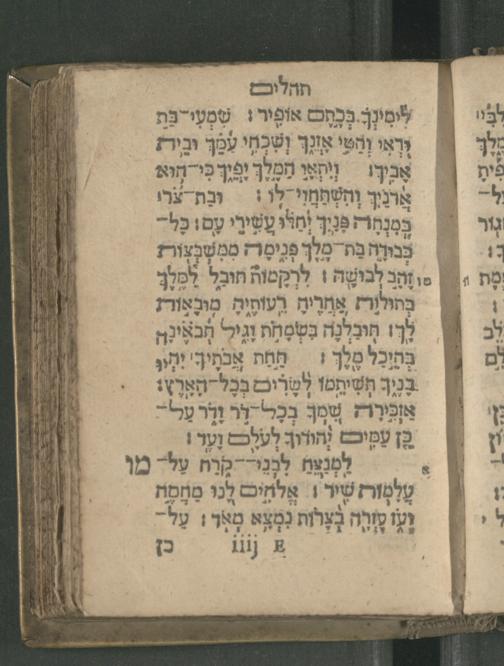 תהלים
לִימִינְךָ בְּכֶתֶם אוֹפִיר׃ שִׁמְעִי־בַת
וּרְאִי וְהַטִּי אָזְנֵךְ וְשִׁכְחִי עַמֵּךְ וּבֵית
אָבִיךְ׃ וְיִתְאָו הַמֶּלֶךְ יָפְיֵךְ כִּי־הוּא
אֲדֹנַיִךְ וְהִשְׁתַּחֲוִי־לוֹ׃ וּבַת־צֹר
בְּמִנְחָה פָּנַיִךְ יְחַלּוּ עֲשִׁירֵי עָם׃ כָּל־
כְּבוּדָּה בַת־מֶלֶךְ פְּנִימָה מִמִּשְׁבְּצוֹת
זָהָב לְבוּשָׁהּ׃ לִרְקָמוֹת תּוּבַל לַמֶּלֶךְ
בְּתוּלוֹת אַחֲרֶיהָ רֵעוֹתֶיהָ מוּבָאוֹת
לָךְ׃ תּוּבַלְנָה בִּשְׂמָחֹת וָגִיל תְּבֹאֶינָה
בְּהֵיכַל מֶלֶךְ׃ תַּחַת אֲבֹתֶיךָ יִהְיוּ
בָנֶיךָ תְּשִׁיתֵמוֹ לְשָׂרִים בְּכָל־הָאָרֶץ׃
אַזְכִּירָה שִׁמְךָ בְּכָל־דֹּר וָדֹר עַל־
כֵּן עַמִּים יְהוֹדוּךָ לְעֹלָם וָעֶד׃
לַמְנַצֵּחַ לִבְנֵי־קֹרַח עַל־ מו
עֲלָמוֹת שִׁיר׃ אֱלֹהִים לָנוּ מַחֲסֶה
וָעֹז עֶזְרָה בְצָרוֹת נִמְצָא מְאֹד׃ עַל־
כן iiij E